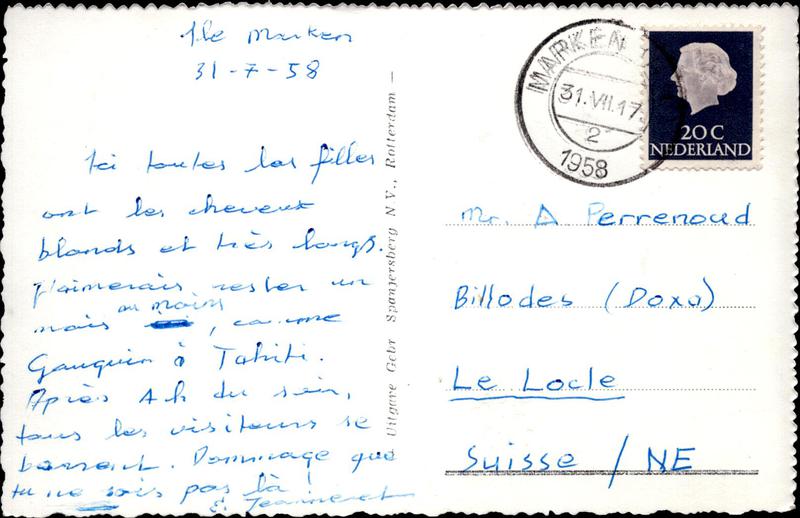 Ile Marken
31-7-58
Ici toutes les filles
ont les cheveux
blonds et très longs.
J'aimerais rester un
mois au moins, comme
Gauguin à Tahiti.
Après 4h du soir,
tous les visiteurs se
barrent. Dommage que
tu ne sois pas là!
E. Jeanneret
Uitgave Gebr Spanjersberg N.V., Rotterdam —
MARKEN
31.VII.17
2
1958
20 C
NEDERLAND
Mr. A Perrenoud
Billodes (Doxa)
Le Locle
Suisse / NE